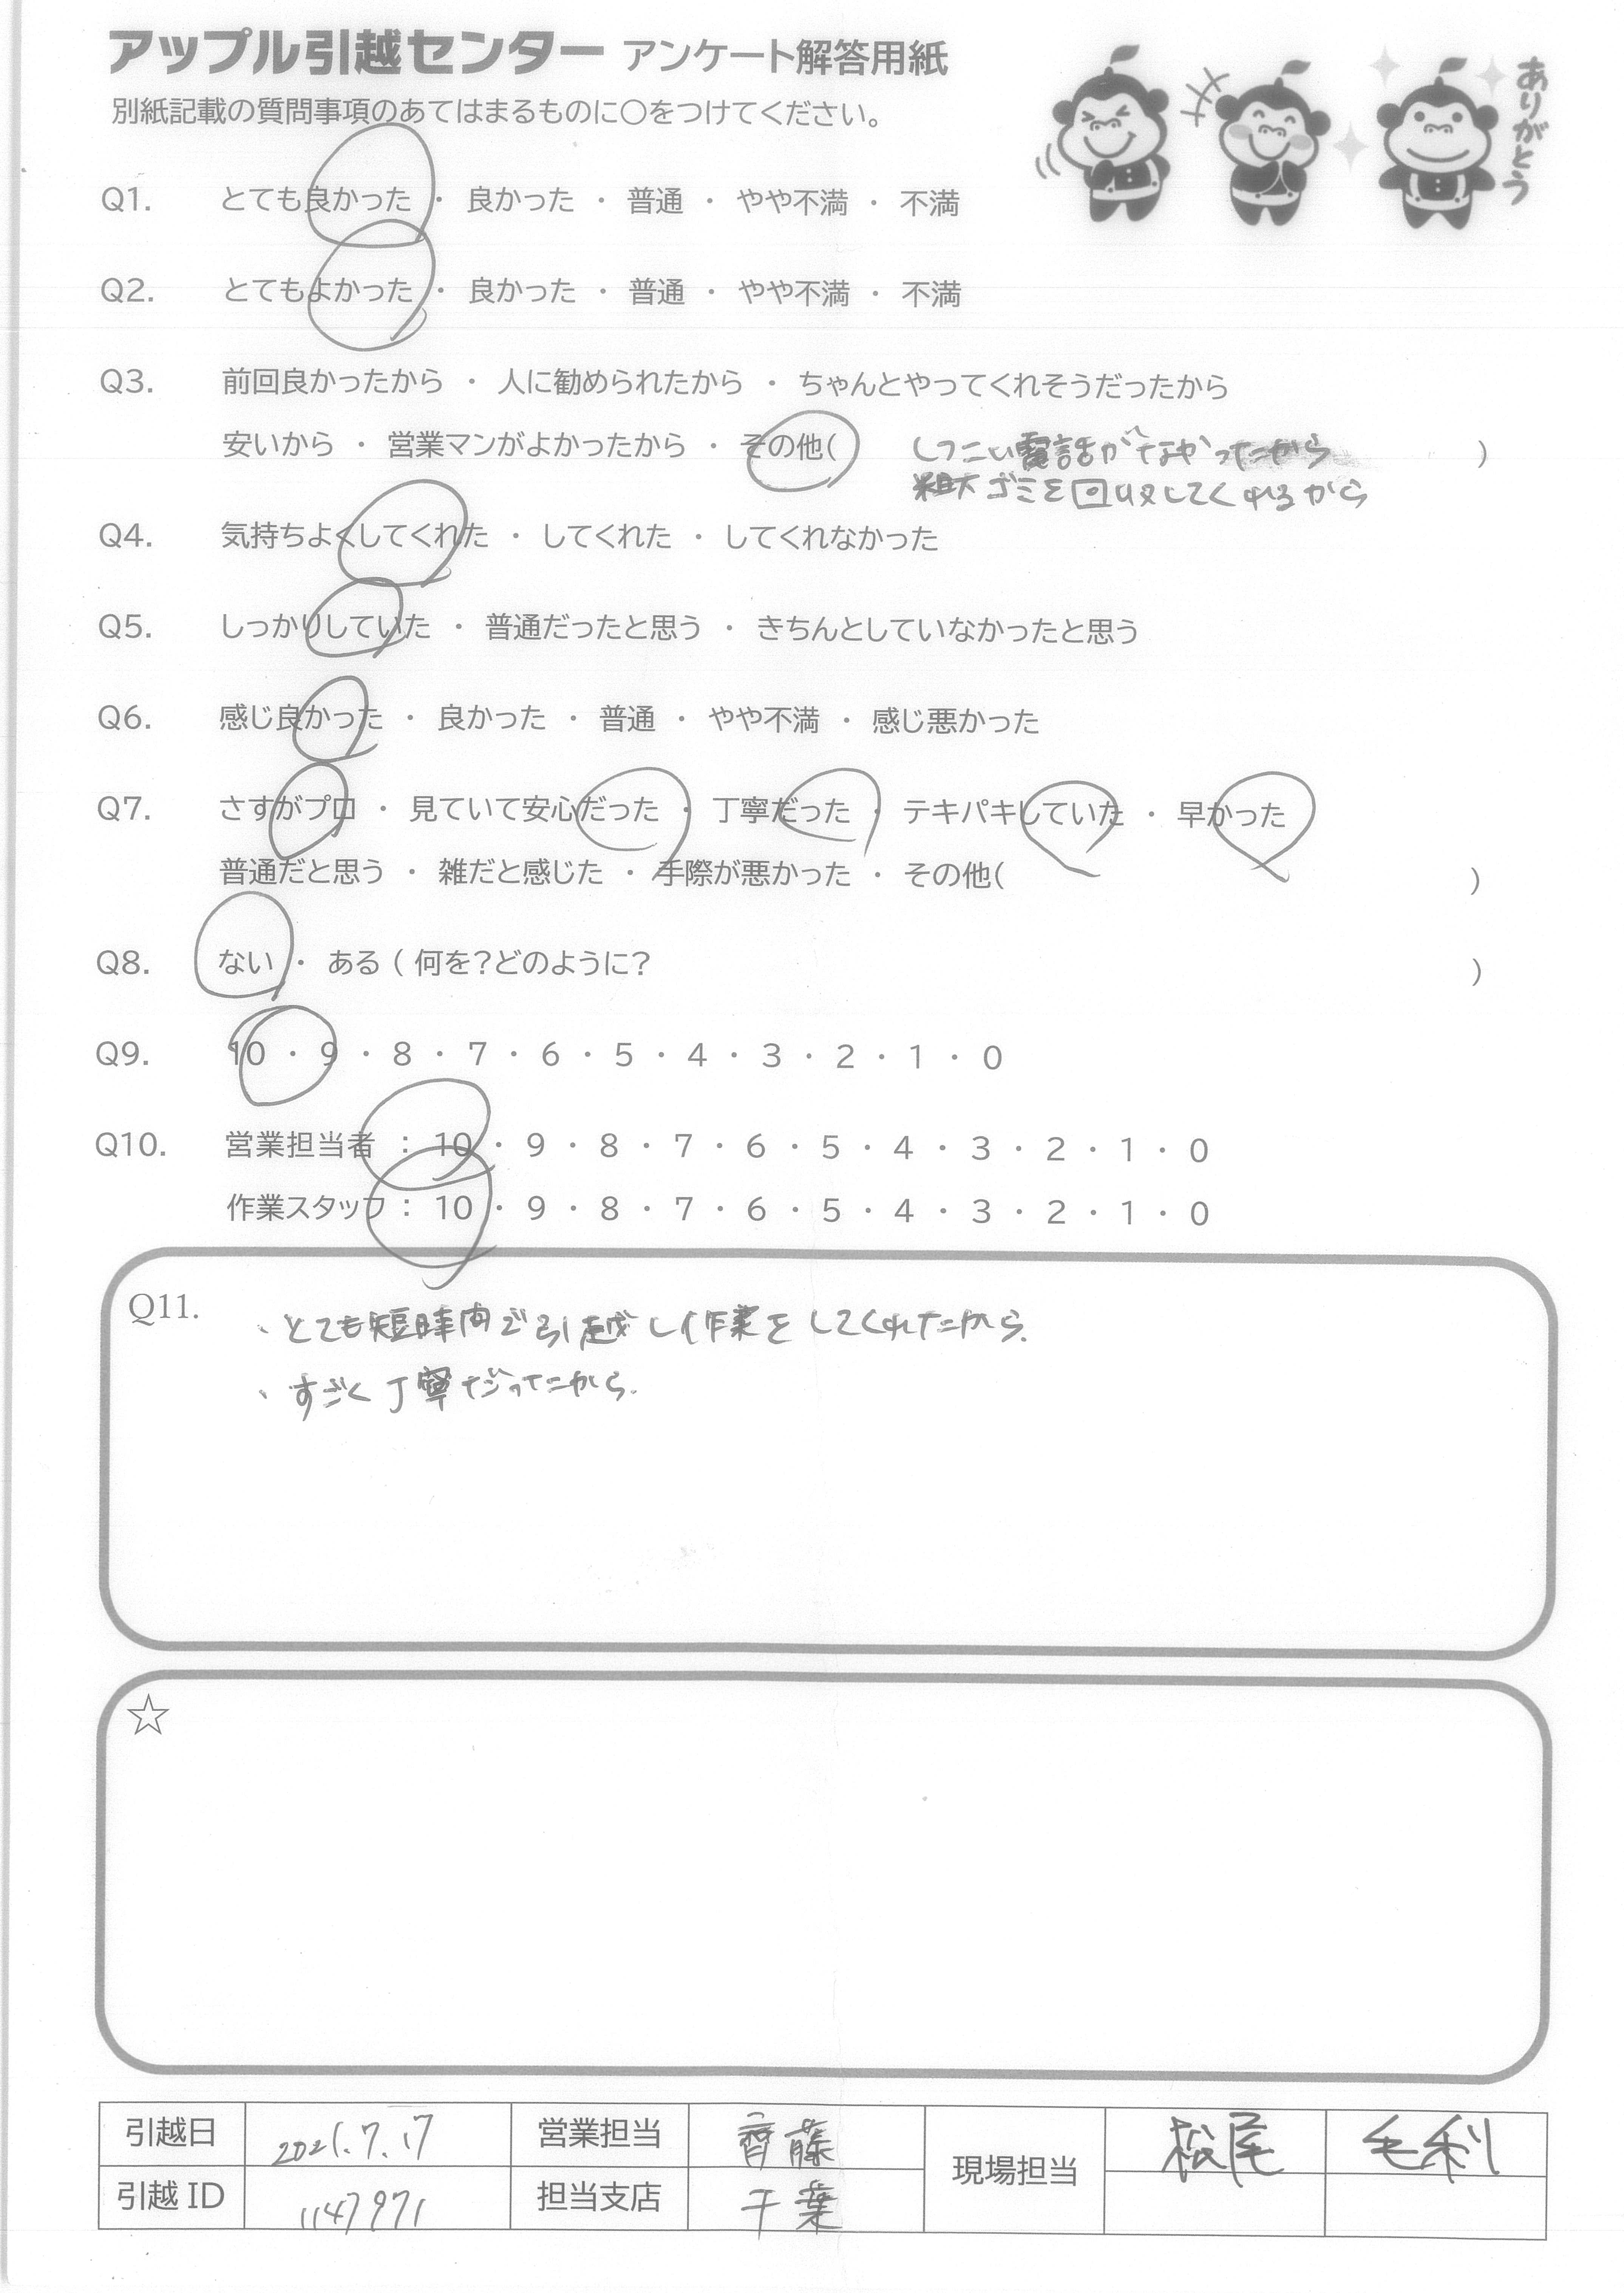 アップル引越センター アンケート解答用紙
ありがとう
別紙記載の質問事項のあてはまるものに〇をつけてください。
Q1. とても良かった ・ 良かった ・ 普通 ・ やや不満 ・ 不満
Q2. とてもよかった ・ 良かった ・ 普通 ・ やや不満 ・ 不満
Q3. 前回良かったから ・ 人に勧められたから ・ ちゃんとやってくれそうだったから
安いから ・ 営業マンがよかったから ・ その他( しつこい電話がなかったから )
粗大ゴミを回収してくれるから
Q4. 気持ちよくしてくれた ・ してくれた ・ してくれなかった
Q5. しっかりしていた ・ 普通だったと思う ・ きちんとしていなかったと思う
Q6. 感じ良かった ・ 良かった ・ 普通 ・ やや不満 ・ 感じ悪かった
Q7. さすがプロ ・ 見ていて安心だった ・ 丁寧だった ・ テキパキしていた ・ 早かった
普通だと思う ・ 雑だと感じた ・ 手際が悪かった ・ その他( )
Q8. ない ・ ある ( 何を?どのように? )
Q9. 10 ・ 9 ・ 8 ・ 7 ・ 6 ・ 5 ・ 4 ・ 3 ・ 2 ・ 1 ・ 0
Q10. 営業担当者 : 10 ・ 9 ・ 8 ・ 7 ・ 6 ・ 5 ・ 4 ・ 3 ・ 2 ・ 1 ・ 0
作業スタッフ : 10 ・ 9 ・ 8 ・ 7 ・ 6 ・ 5 ・ 4 ・ 3 ・ 2 ・ 1 ・ 0
Q11. ・とても短時間で引越し作業をしてくれたから.
・すごく丁寧だったから.
☆
引越日 2021.7.17 営業担当 齊藤 現場担当 松尾 毛利
引越 ID 1147971 担当支店 千葉